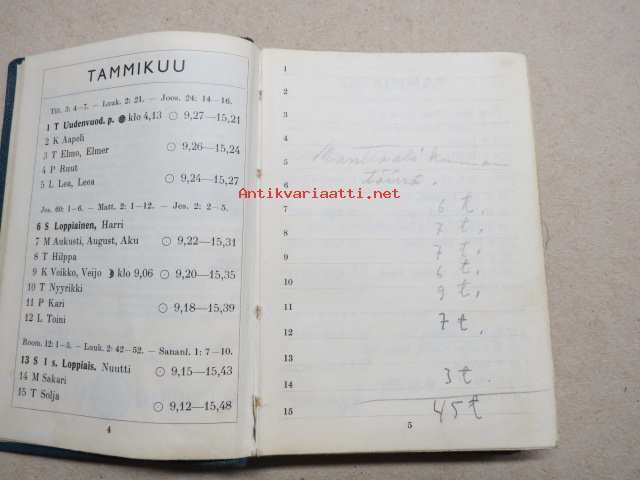 TAMMIKUU
Tit. 3: 4—7. — Luuk. 2: 21. — Joos. 24: 14—16.
1 T Uudenvuod. p. ● klo 4,13 ☉ 9,27—15,21
2 K Aapeli
3 T Elmo, Elmer ☉ 9,26—15,24
4 P Ruut
5 L Lea, Leea ☉ 9,24—15,27
Jes. 60: 1—6. — Matt. 2: 1—12. — Jes. 2: 2—5.
6 S Loppiainen, Harri
7 M Aukusti, August, Aku ☉ 9,22—15,31
8 T Hilppa
9 K Veikko, Veijo ☽ klo 9,06 ☉ 9,20—15,35
10 T Nyyrikki
11 P Kari ☉ 9,18—15,39
12 L Toini
Room. 12: 1—5. — Luuk. 2: 42—52. — Sananl. 1: 7—10.
13 S 1 s. Loppiais. Nuutti ☉ 9,15—15,43
14 M Sakari
15 T Solja ☉ 9,12—15,48
4
1
2
3
4
5
6
töissä.
7 6 t.
8 7 t.
9 7 t.
10 6 t.
11 9 t.
12 7 t.
13
14 3 t.
15 45 t
5
Antikvariaatti.net